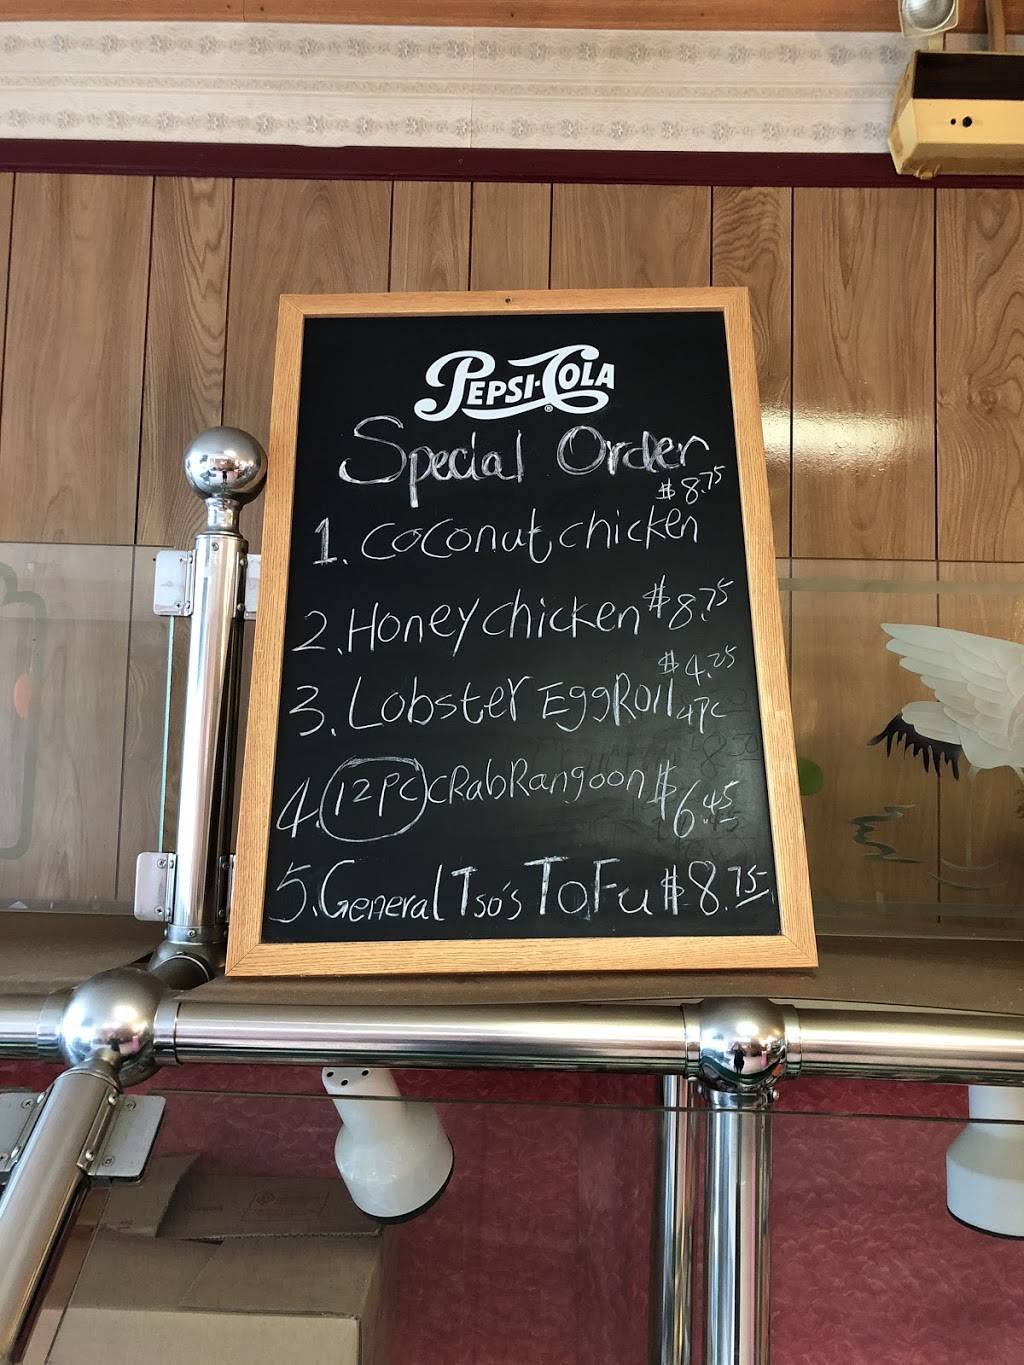 PEPSI-COLA
Special Order
$8.75
1. coconut chicken
2. Honey chicken $8.75
$4.25
3. Lobster EggRoll 4pc
4. 12PC CRab Rangoon $6.45
5. General Tso's ToFu $8.75